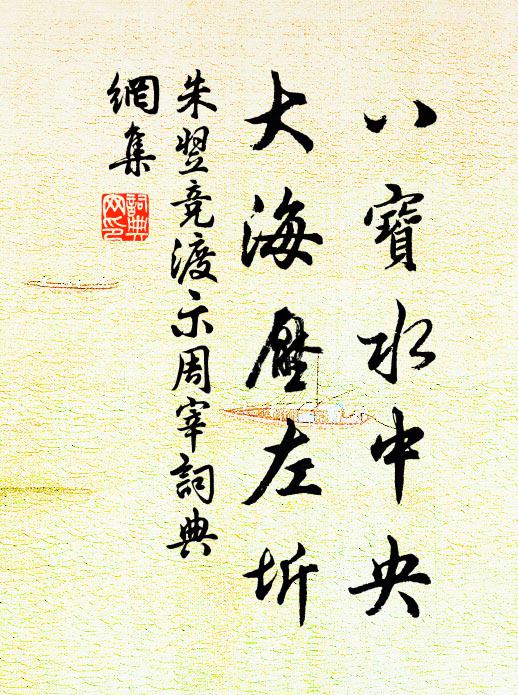 八寶水中央
大海壓左圻
朱翌竞渡示周宰詞典
網集
詞典
网印